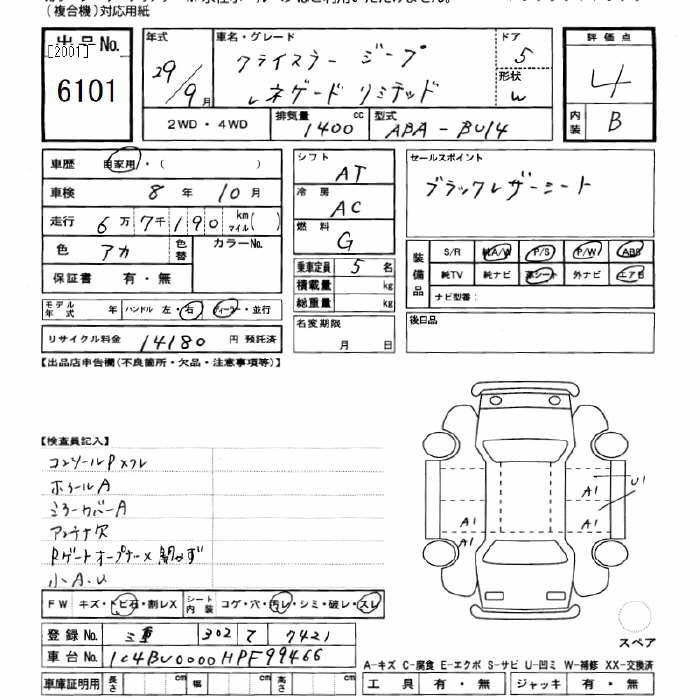 (複合機)対応用紙
出品No. [2001] 6101
年式 29/9月
車名・グレード クライスラー ジープ レネゲード リミテッド
ドア 5
形状 W
評価点 4
内装 B
2WD・4WD
排気量 1400 cc
型式 ABA-BU14
車歴 自家用・( )
車検 8年 10月
走行 6万7千190 km マイル( )
色 アカ 色替 カラーNo.
保証書 有・無
モデル年式 年 ハンドル 左・右 ディーラー・並行
リサイクル料金 14180 円 預託済
シフト AT
冷房 AC
燃料 G
乗車定員 5 名
積載量 kg
総重量 kg
名変期限 月 日
セールスポイント
ブラックレザーシート
装備品 S/R 純A/W P/S P/W ABS
純TV 純ナビ 革シート 外ナビ エアB
ナビ型番:
後日品
【出品店申告欄(不良箇所・欠品・注意事項等)】
【検査員記入】
コンソールPメクレ
ホイールA
ミラーカバーA
アンテナ欠
Rゲートオープナー× 開かず
小A.U
FW キズ・トビ石・割レX シート内装 コゲ・穴・汚レ・シミ・破レ・スレ
登録No. 三重 302 て 7421
車台No. 1C4BU0000HPF99466
車庫証明用 長さ cm 幅 cm 高さ cm
A1
U1
A1
A1
A1
スペア
A-キズ C-腐食 E-エクボ S-サビ U-凹ミ W-補修 XX-交換済
工具 有・無 ジャッキ 有・無